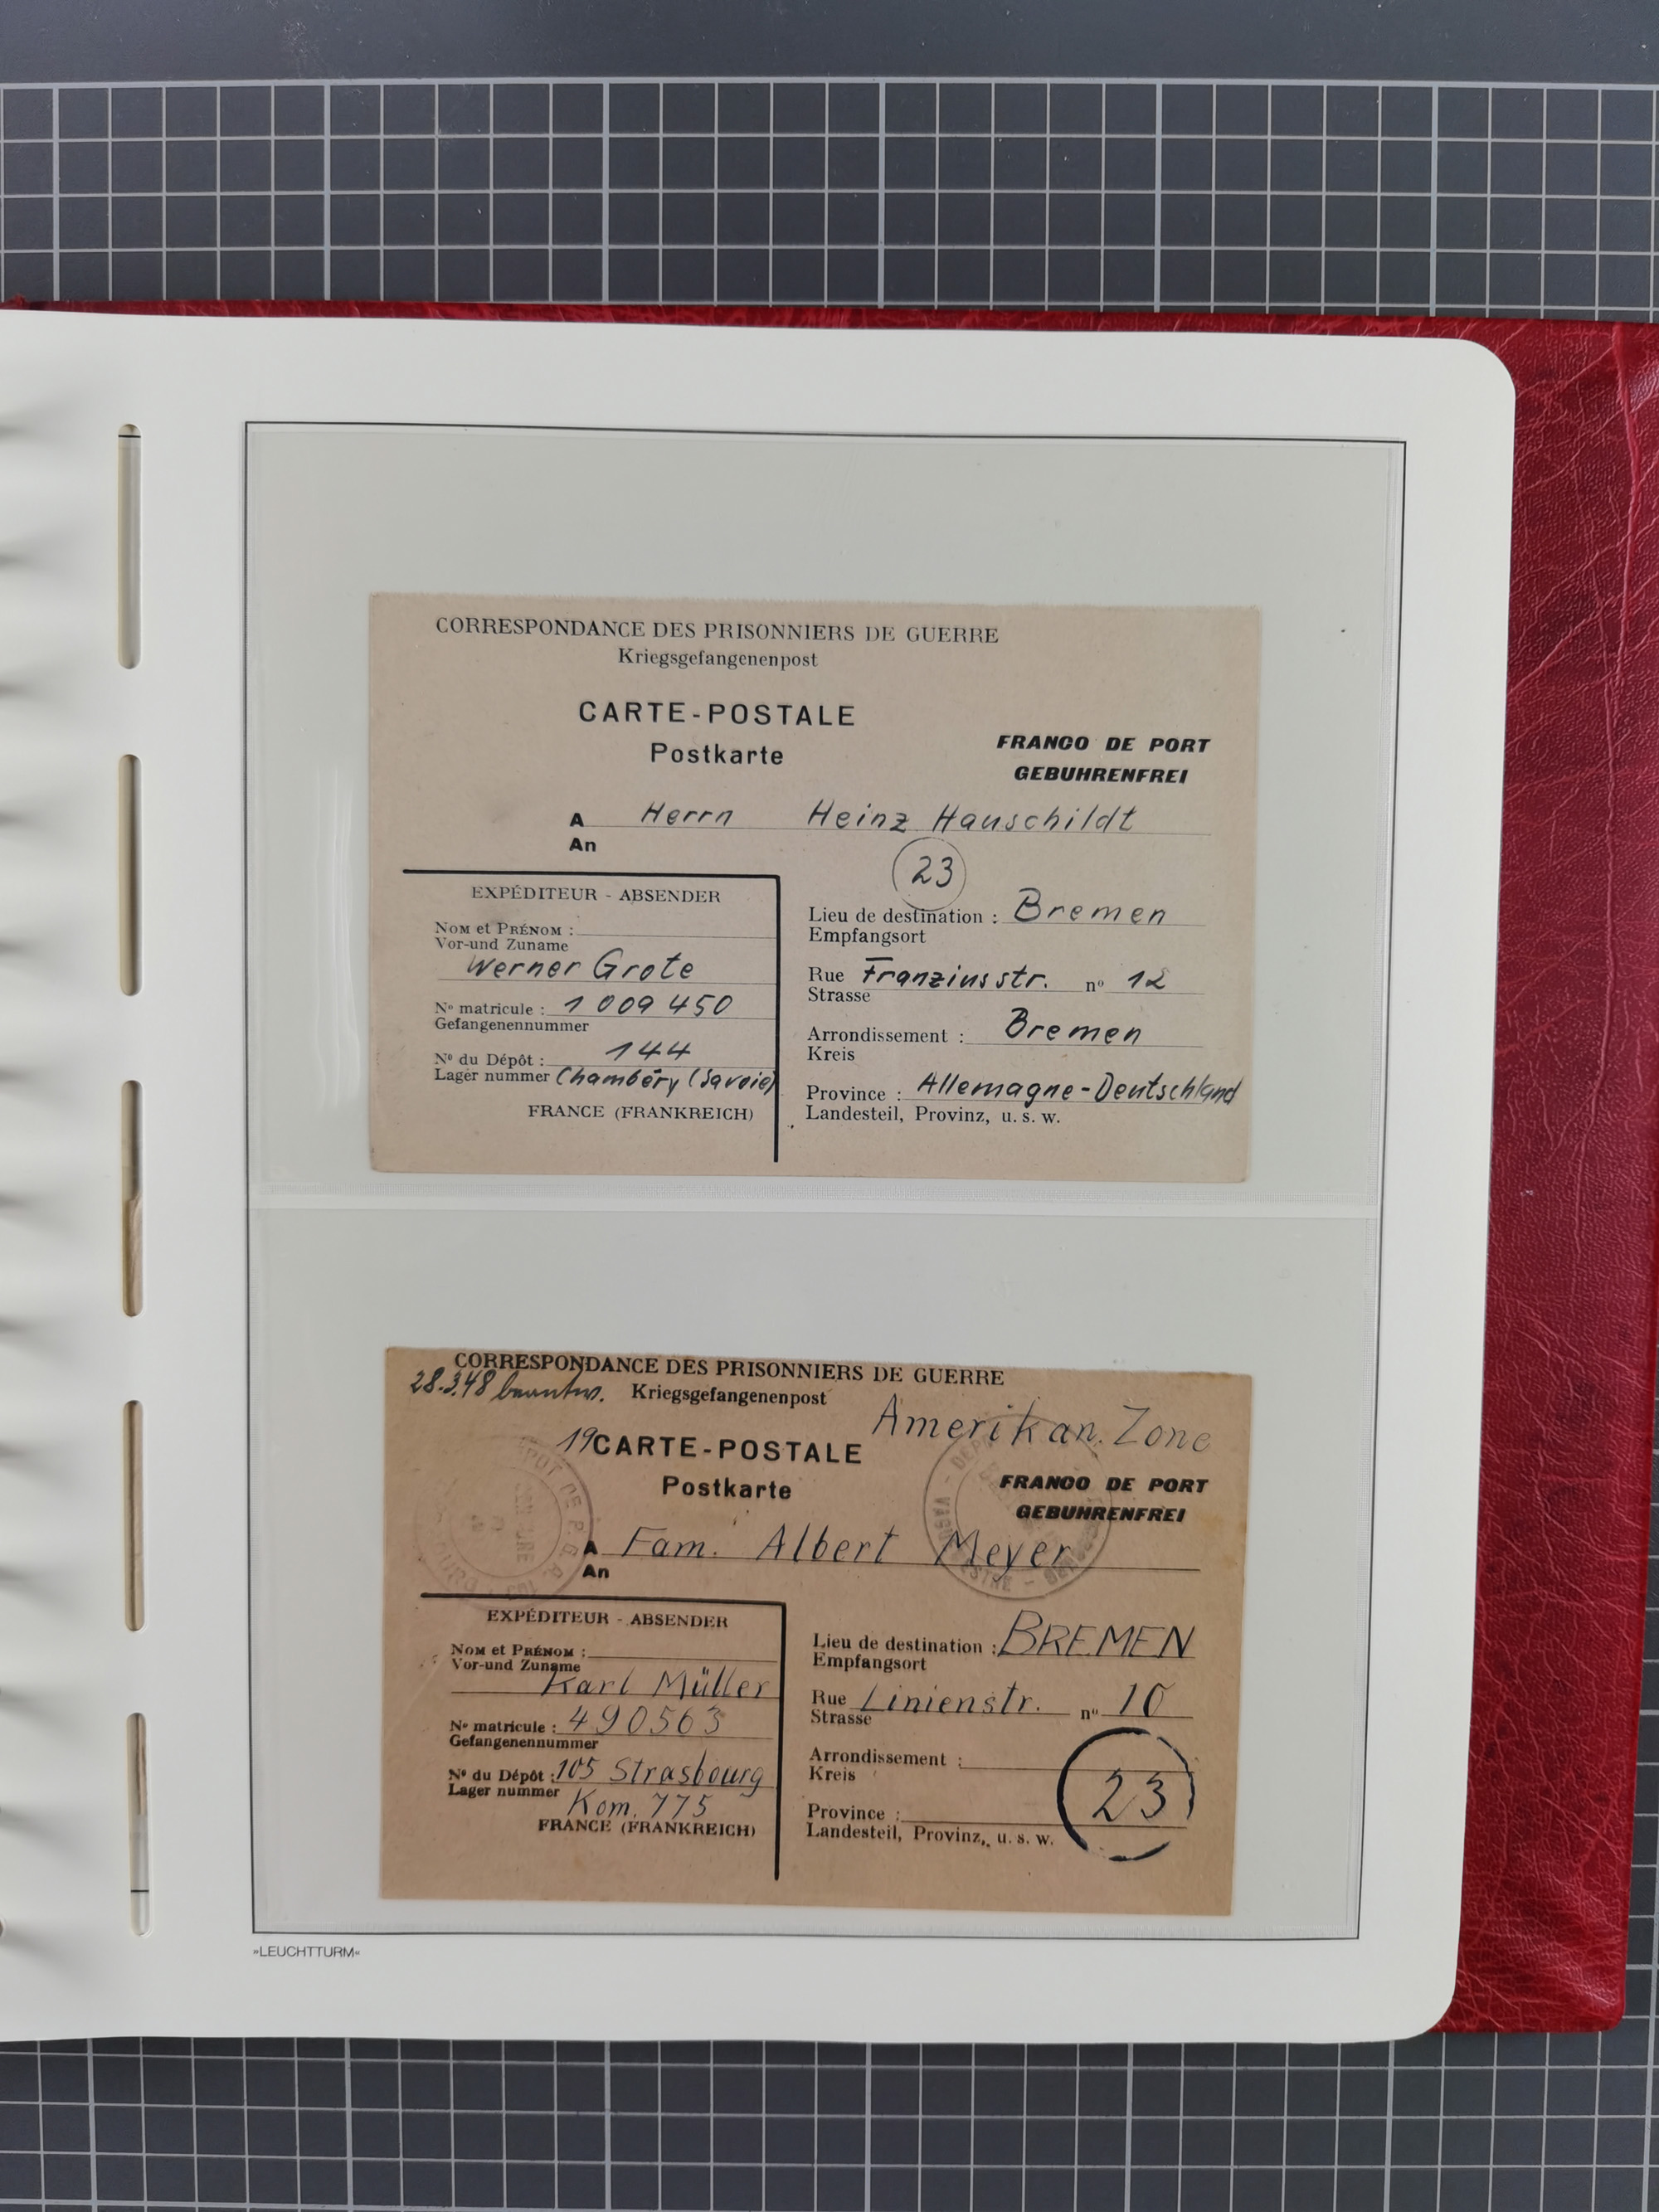 CORRESPONDANCE DES PRISONNIERS DE GUERRE
Kriegsgefangenenpost
CARTE-POSTALE
Postkarte
FRANCO DE PORT
GEBUHRENFREI
A Herrn Heinz Hauschildt
An
23
EXPÉDITEUR - ABSENDER
NOM et PRÉNOM :
Vor-und Zuname
Werner Grote
Nº matricule : 1 009 450
Gefangenennummer
Nº du Dépôt : 144
Lager nummer Chambéry (Savoie)
FRANCE (FRANKREICH)
Lieu de destination : Bremen
Empfangsort
Rue Franziusstr. nº 12
Strasse
Arrondissement : Bremen
Kreis
Province : Allemagne-Deutschland
Landesteil, Provinz, u. s. w.
CORRESPONDANCE DES PRISONNIERS DE GUERRE
28.3.48 beantw. Kriegsgefangenenpost
Amerikan. Zone
19 CARTE-POSTALE
Postkarte
FRANCO DE PORT
GEBUHRENFREI
A Fam. Albert Meyer
An
DEPOT DE P.G.
EXPÉDITEUR - ABSENDER
NOM et PRÉNOM :
Vor-und Zuname
Karl Müller
Nº matricule : 490563
Gefangenennummer
Nº du Dépôt : 105 Strasbourg
Lager nummer Kom. 775
FRANCE (FRANKREICH)
Lieu de destination : BREMEN
Empfangsort
Rue Linienstr. nº 10
Strasse
Arrondissement :
Kreis
23
Province :
Landesteil, Provinz, u. s. w.
»LEUCHTTURM«